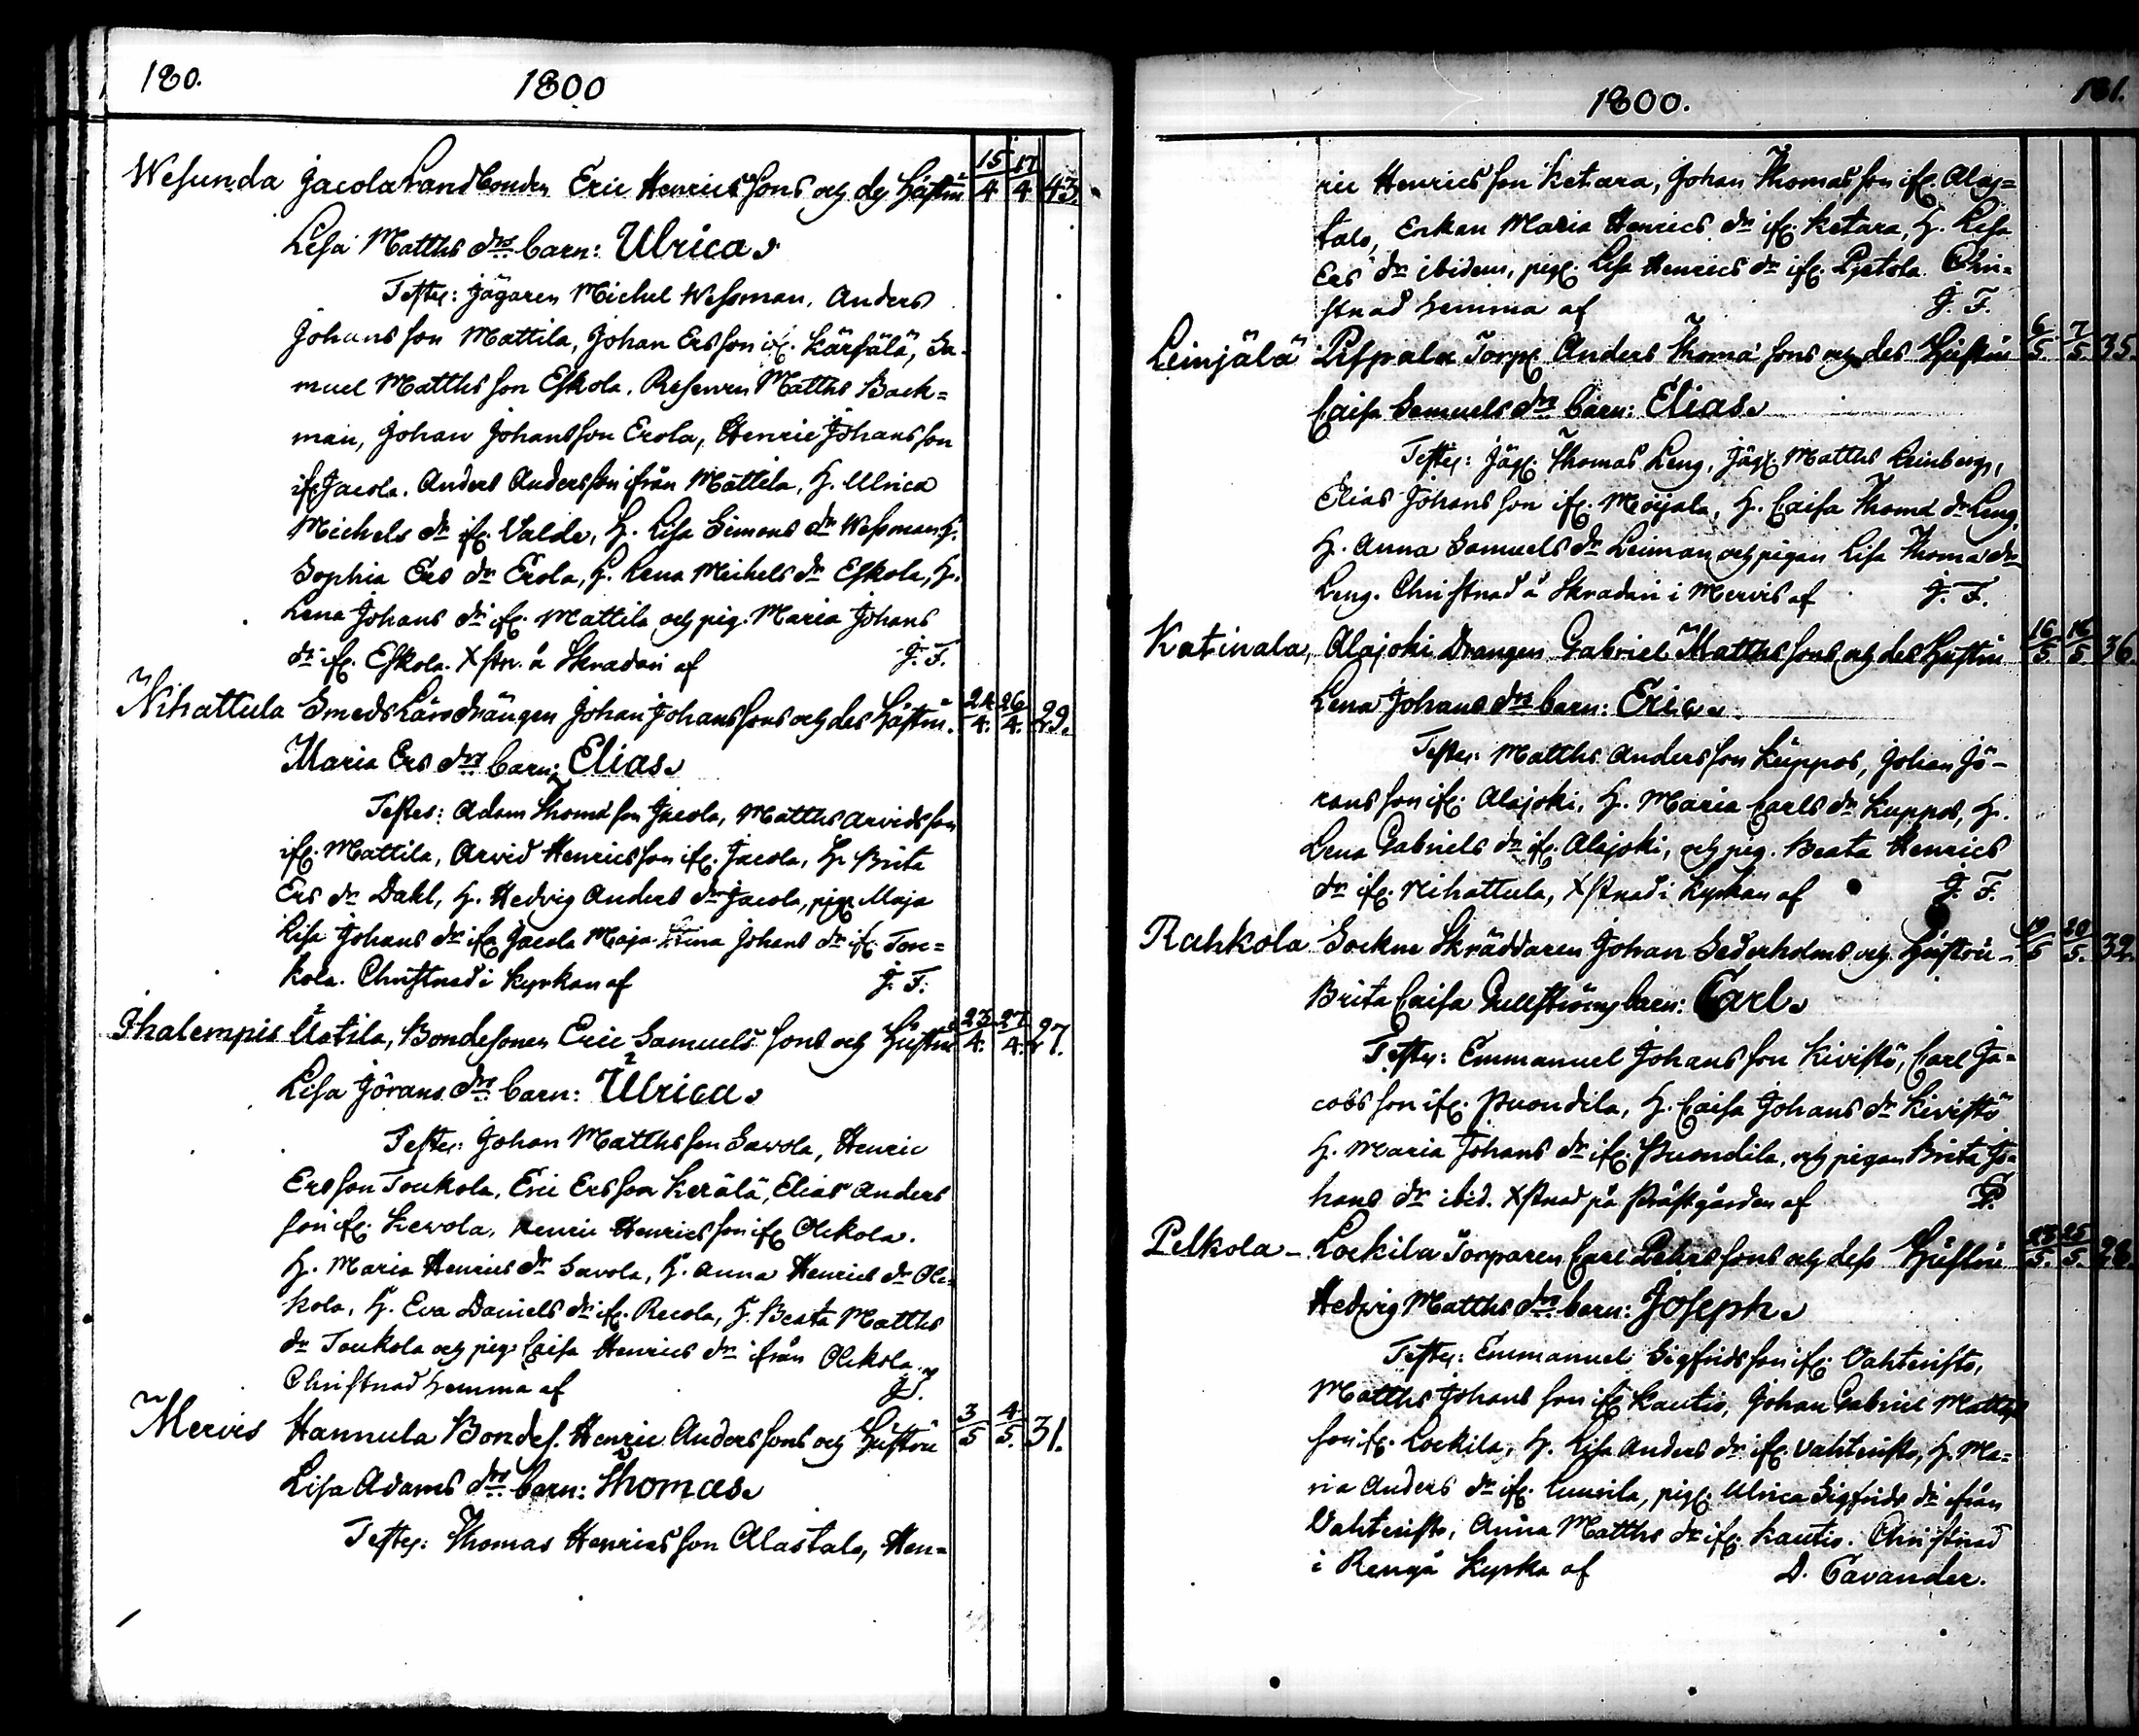 180.
1800
Wesunda Jacola Landbonden Eric Henricssons och dess Hustru 15/4 17/4 43.
Lisa Matths drs barn: Ulrica.
Testes: Jägaren Michel Wessman, Anders
Johansson Mattila, Johan Ersson ifr. Kärsälä, Sa-
muel Matthsson Eskola. Reserven Matths Back=
man, Johan Johansson Erola, Henric Johansson
ifr. Jacola. Anders Andersson ifrån Mattila, H. Ulrica
Michels dr ifr. Valde, H. Lisa Simons dr Wessman, H.
Sophia Ers dr Erola, H. Lena Michels dr Eskola, H.
Lena Johans dr ifr. Mattila och pig. Maria Johans
dr ifr. Eskola. Xstn. å Skradari af J. F.
Nihattula Smeds Läro drängen Johan Johanssons och des Hustru 24/4. 26/4. 29.
Maria Ers drs barn: Elias.
Testes: Adam Thomæson Jacola, Matths Arvidsson
ifr. Mattila, Arvid Henricsson ifr. Jacola, H. Brita
Ers dr Dahl, H. Hedvig Anders dr Jacola, pig. Maja
Lisa Johans dr ifr. Jacola Maja Stina Johans dr ifr. Tou=
kola. Christnad i Kyrkan af J. F.
Ihalempis Uotila, Bondesonen Eric Samuelssons och Hustru 23/4. 27/4. 27.
Lisa Jörans drs barn: Ulrica.
Testes: Johan Matthsson Savola, Henric
Ersson Toukola, Eric Ersson Kerälä, Elias Anders
son ifr. Kewola, Henric Henricsson ifr. Olckola.
H. Maria Henrics dr Savola, H. Anna Henrics dr Olc=
kola, H. Eva Daniels dr ifr. Recola, H. Beata Matths
dr Toukola och pig. Caisa Henrics dr ifrån Olckola.
Christnad hemma af J. F.
Mervis Hannula Bondes. Henric Anderssons och Hustru 3/5 4/5. 31.
Lisa Adams drs barn: Thomas.
Testes: Thomas Henricsson Alastalo, Hen=
1800.
181.
ric Henricsson Ketara, Johan Thomasson ifr. Alas=
talo, Enkan Maria Henrics dr ifr. Ketara, H. Lisa
Ers dr ibidem, pig. Lisa Henrics dr ifr. Pietola. Chri=
stnad hemma af J. F.
Leinjälä Pispala Torp. Anders Thomæ sons och des Hustru 6/5 7/5 35.
Caisa Samuels drs barn: Elias.
Testes: Jäg. Thomas Leng, Jäg. Matths Leinberg,
Elias Johansson ifr. Moijala, H. Caisa Thomæ dr Leng,
H. Anna Samuels dr Leiman och pigan Lisa Thomæ dr
Leng. Christnad å Skradari i Mervis af J. F.
Katinala, Alajoki Drängen Gabriel Matthssons och des Hustru 16/5. 16/5 36.
Lena Johans drs barn: Eric.
Testes: Matths Andersson Kuppos, Johan Jö-
ransson ifr. Alajoki, H. Maria Carls dr Kuppos, H.
Lena Gabriels dr ifr. Alajoki, och pig. Beata Henrics
dr ifr. Nihattula, Xstnad i Kyrkan af J. F.
Rahkola Sockne Skräddaren Johan Sederholms och Hustru 19/5 20/5. 32.
Brita Caisa Gullströms barn: Carl.
Testes: Emmanuel Johansson Kivistö, Carl Ja=
cobsson ifr. Puondila, H. Caisa Johans dr Kivistö
H. Maria Johans dr ifr. Puondila, och pigan Brita Jo=
hans dr ibid. Xstnad på Prästgården af
Pelkola Lockila Torparen Carl Pehrssons och dess Hustru 23/5. 25/5. 28.
Hedvig Matths drs barn: Joseph.
Testes: Emmanuel Sigfridsson ifr. Vahteristo,
Matths Johansson ifr. Kautio, Johan Gabriel Matths
son ifr. Lockila, H. Lisa Anders dr ifr. Vahteristo, H. Ma=
ria Anders dr ifr. Cuusila, pig. Ulrica Sigfrids dr ifrån
Vahteristo, Anna Matths dr ifr. Kautio. Christnad
i Rengå Kyrka af D. Cavander.